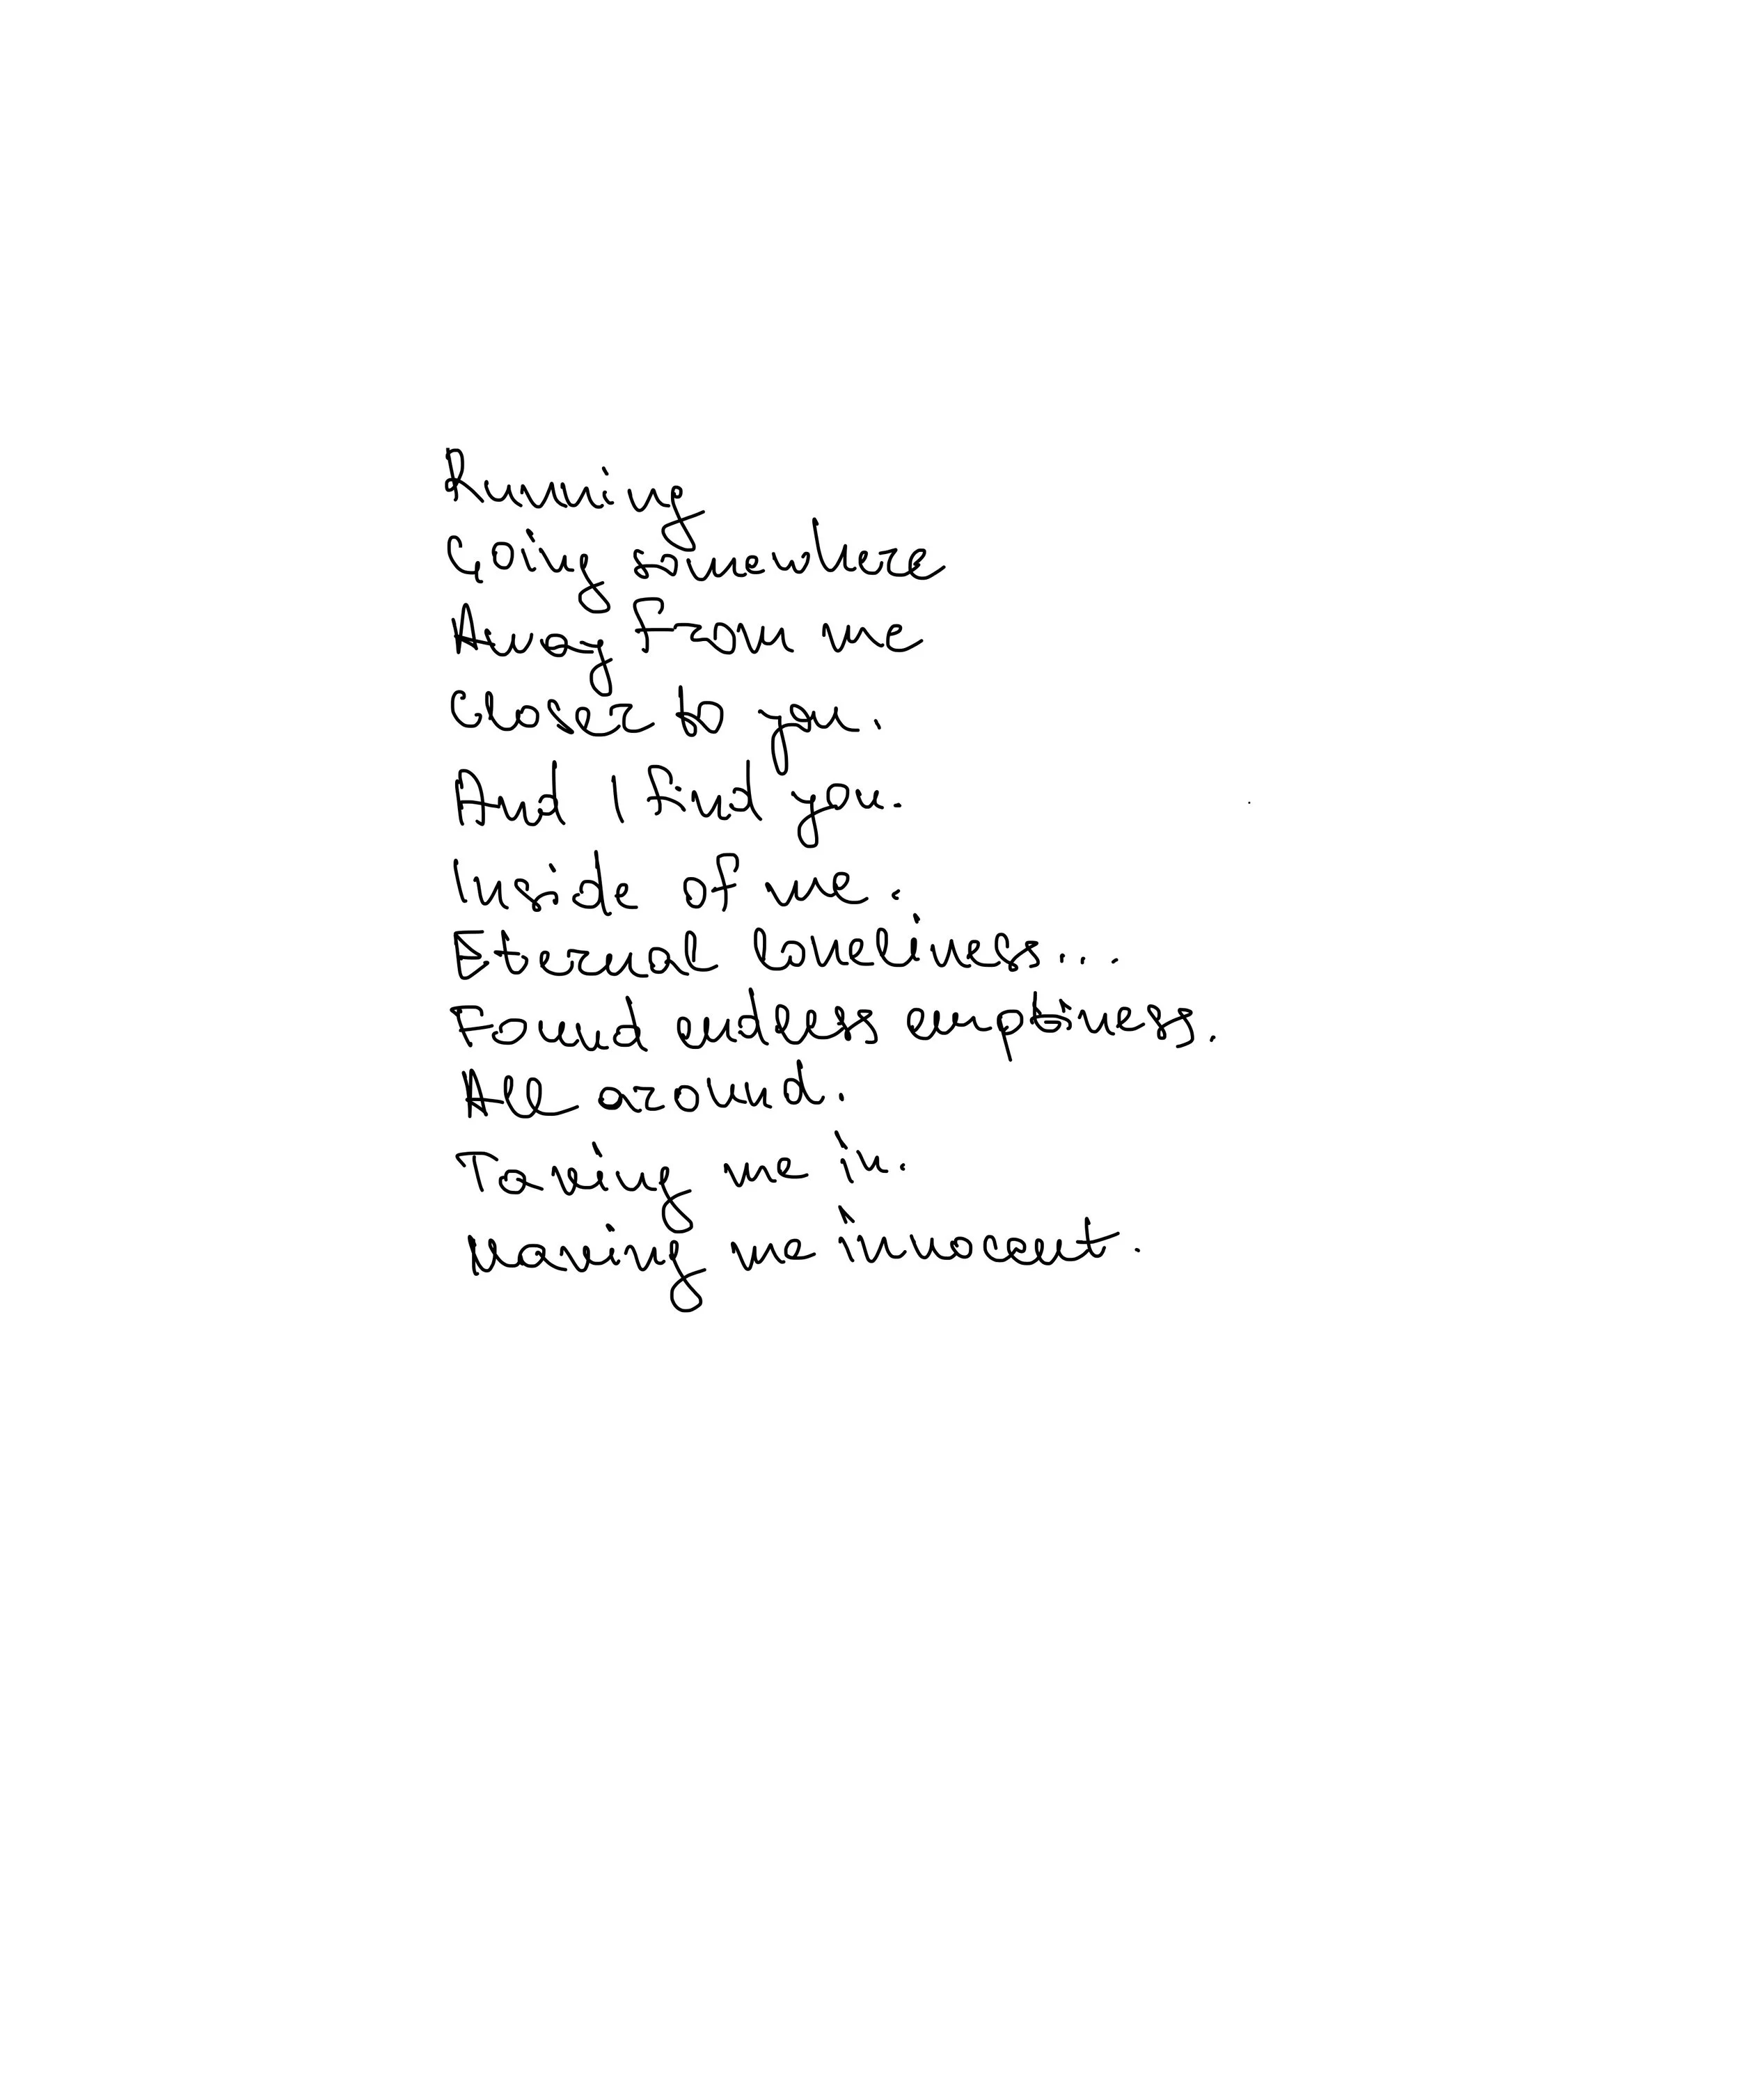 Running
Going somewhere
Away From me
Closer to you.
And I find you.
Inside of me.
Eternal loveliness...
Found endless emptiness.
All around.
Taking me in.
Making me innocent.